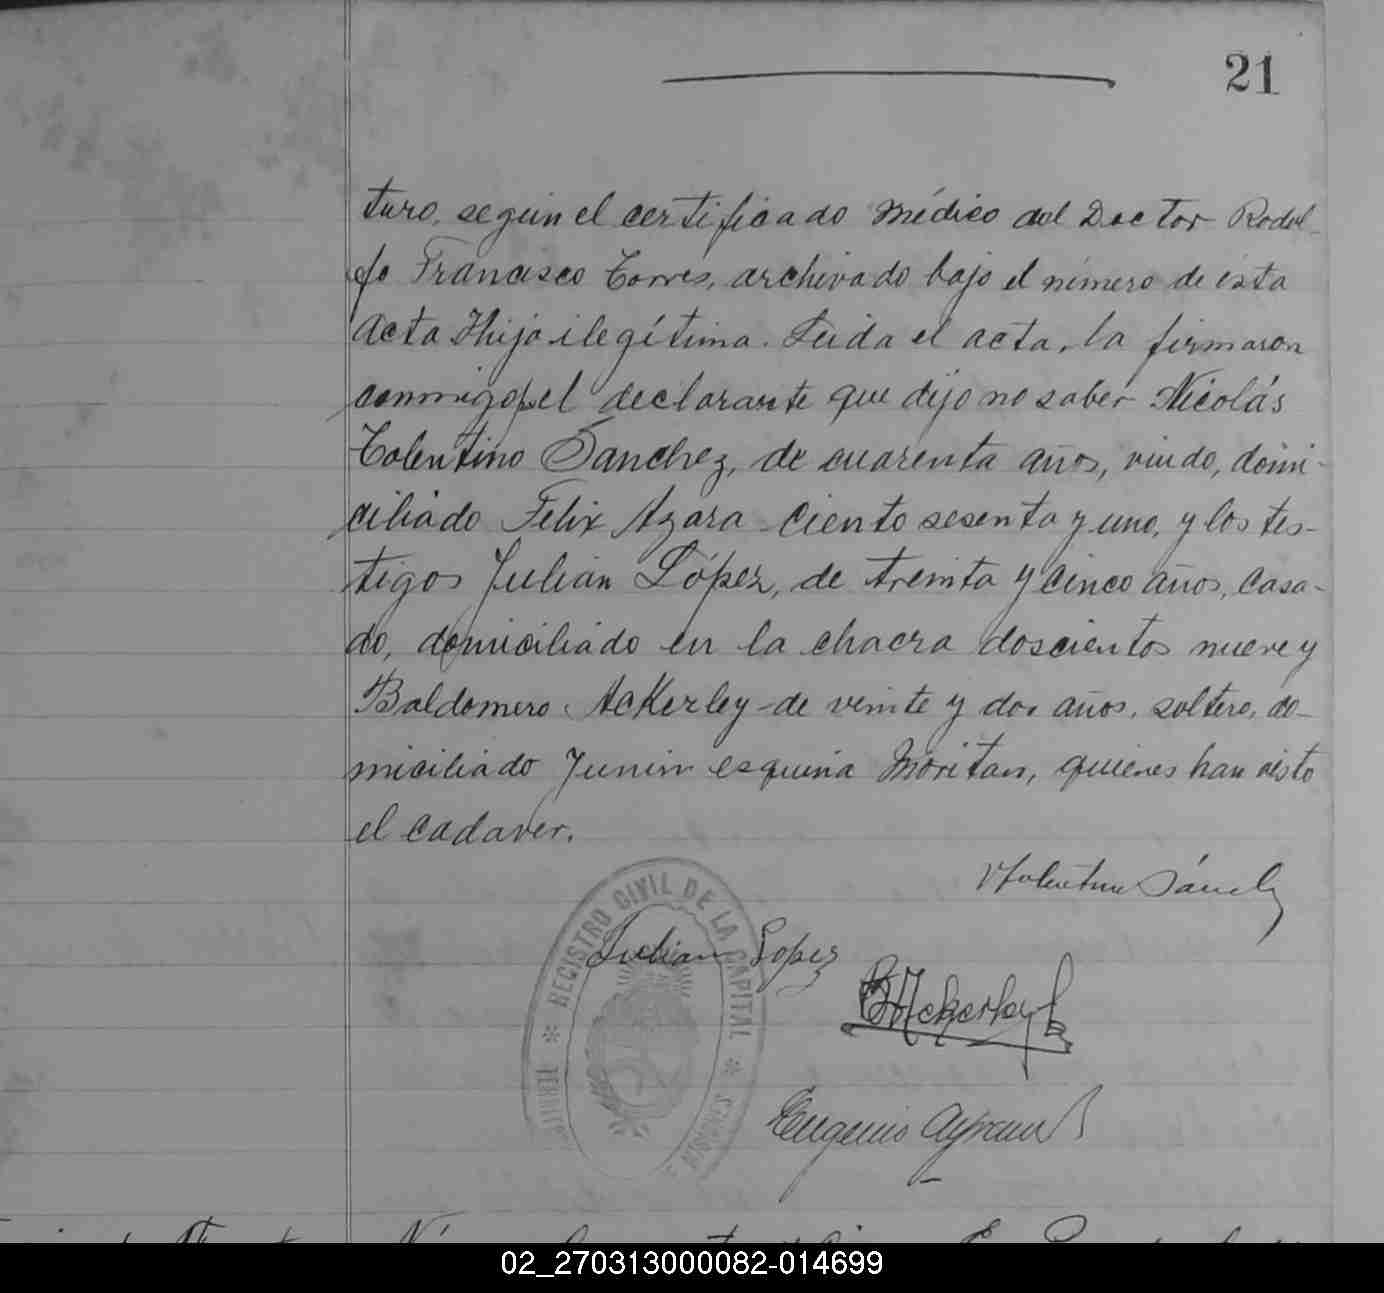 21
turo, según el certificado médico del Doctor Rodol-
fo Francisco Torres, archivado bajo el número de ésta
acta Hija ilegítima. Leida el acta, la firmaron
conmigo, el declarante que dijo no saber Nicolás
Tolentino Sanchez, de cuarenta años, viudo, domi-
ciliado Felix Azara ciento sesenta y uno, y los tes-
tigos Julián López, de treinta y cinco años, casa-
do, domiciliado en la chacra doscientos nueve y
Baldomero Ackerley de veinte y dos años, soltero, do-
miciliado Junin esquina Moritan, quienes han visto
el cadaver.
Ntolentino Sánchez
Julian Lopez
BAckerley
Eugenio
REGISTRO CIVIL DE LA CAPITAL
MISIONES
02_270313000082-014699